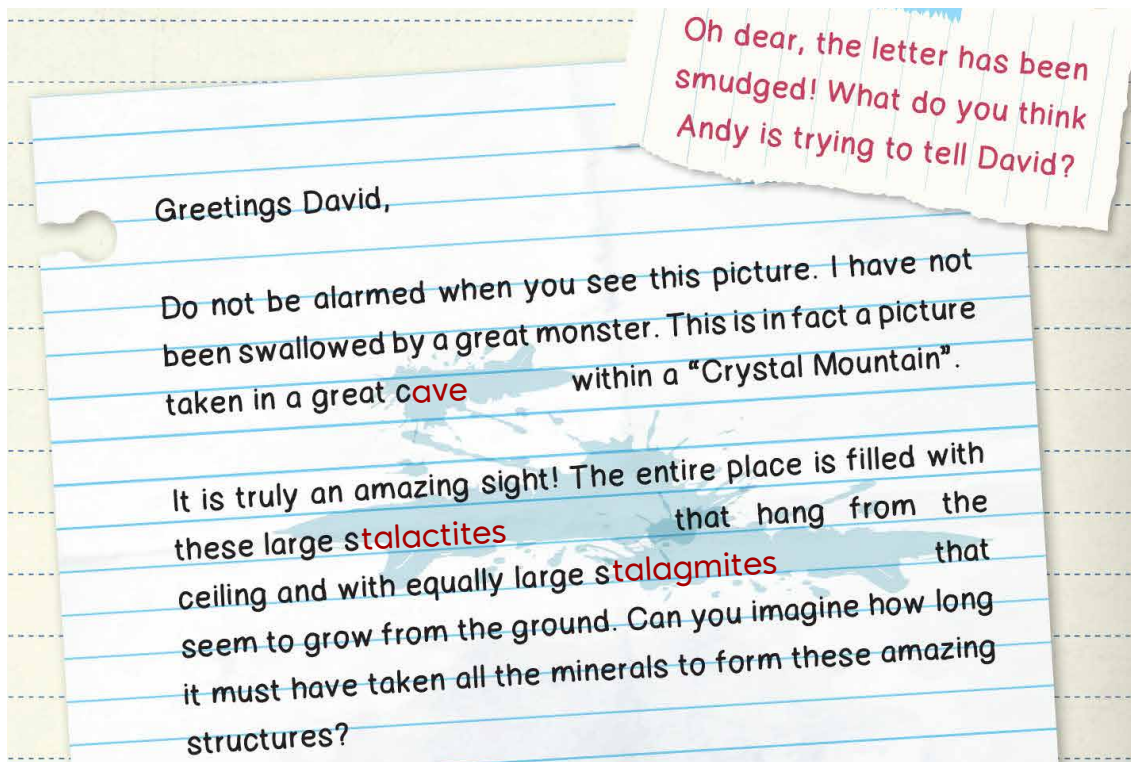 Oh dear, the letter has been
smudged! What do you think
Andy is trying to tell David?
Greetings David,
Do not be alarmed when you see this picture. I have not
been swallowed by a great monster. This is in fact a picture
taken in a great cave within a “Crystal Mountain”.
It is truly an amazing sight! The entire place is filled with
these large stalactites that hang from the
ceiling and with equally large stalagmites that
seem to grow from the ground. Can you imagine how long
it must have taken all the minerals to form these amazing
structures?